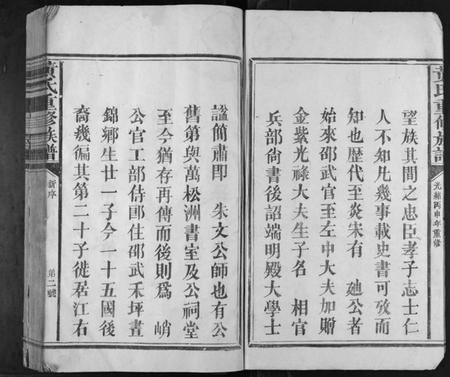 黃氏重修族譜
光緒丙申年重修
望族其間之忠臣孝子志士仁
人不知凡幾事載史書可攷而
知也歷代至炎宋有　廸公者
始來邵武官至左中大夫加贈
金紫光祿大夫生子名　相官
兵部尙書後詔端明殿大學士
諡簡肅卽　朱文公師也有公
舊第與萬松洲書室及公祠堂
至今猶存再傳而後則爲　峭
公官工部侍郎住邵武禾坪畫
錦鄉生廿一子今一十五國後
裔幾徧其第二十子徙居江右
黃氏重修族譜
新序
第二號